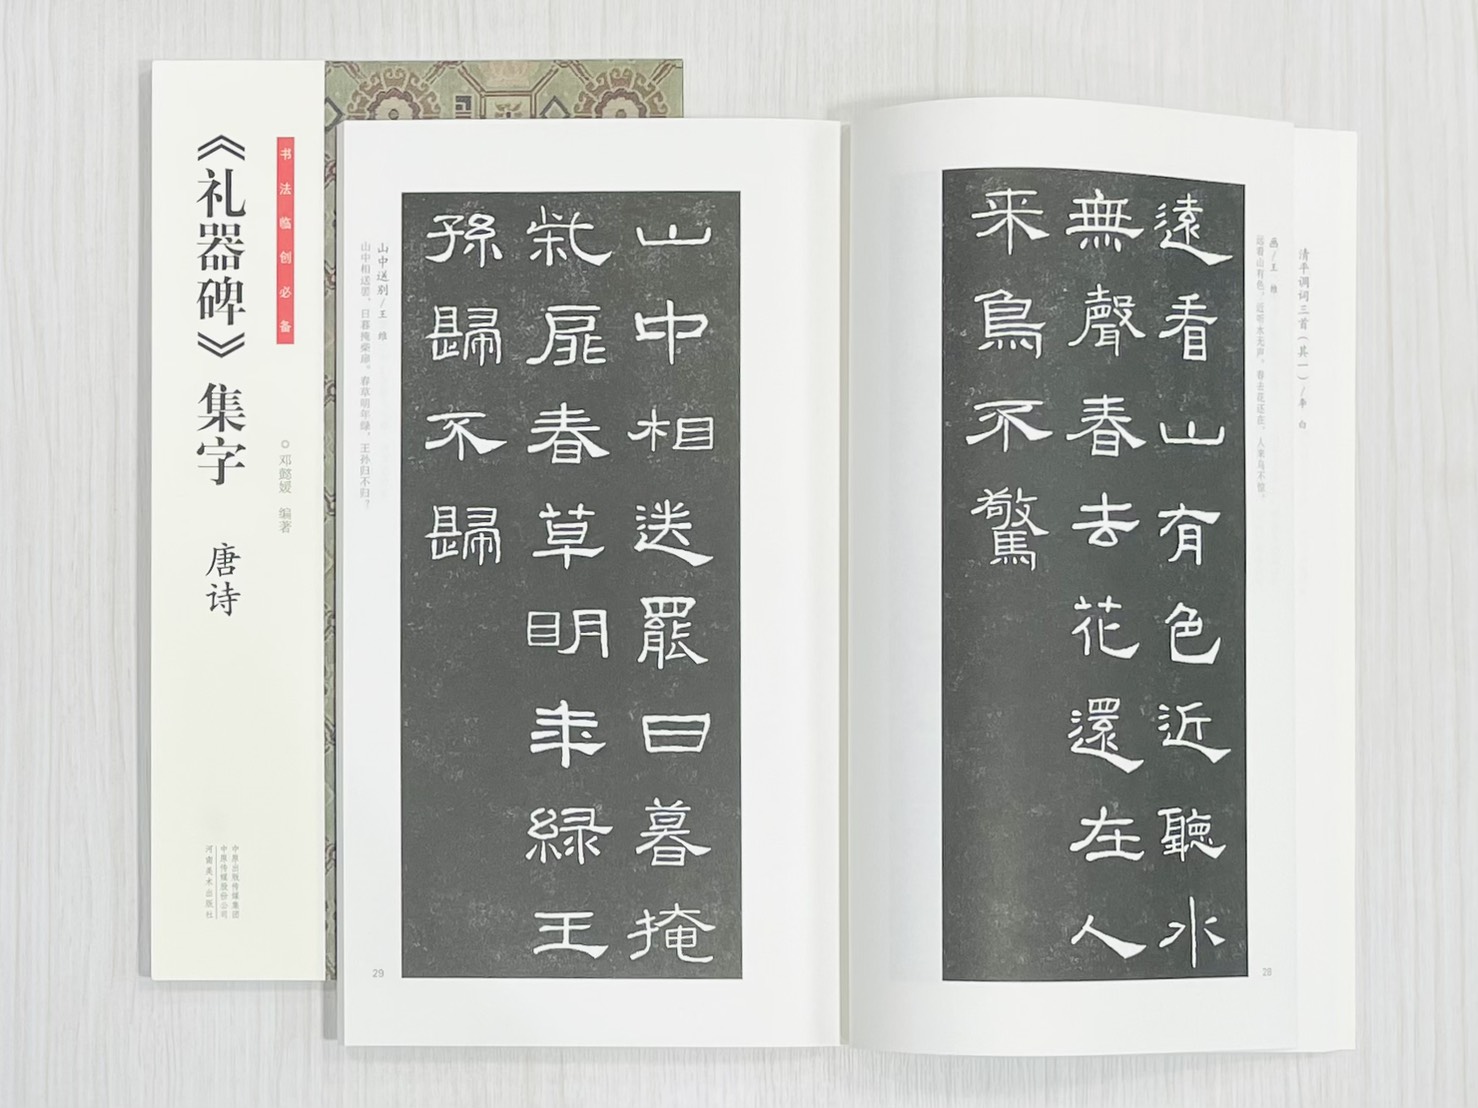 书法临创必备
《礼器碑》集字 唐诗
邓懿媛 编著
中原出版传媒集团
中原传媒股份公司
河南美术出版社
清平调词三首（其一）/李 白
画/王 维
远看山有色，近听水无声。春去花还在，人来鸟不惊。
遠看山有色近聽水
無聲春去花還在人
来鳥不驚
28
山中相送罷日暮掩
柴扉春草明年緑王
孫歸不歸
山中送别/王 维
山中相送罢，日暮掩柴扉。春草明年绿，王孙归不归？
29